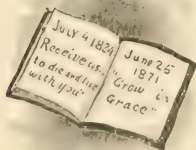 July 4 1824
Receive us
to die and live
with you"
June 25
1871
"Grow in
Grace"